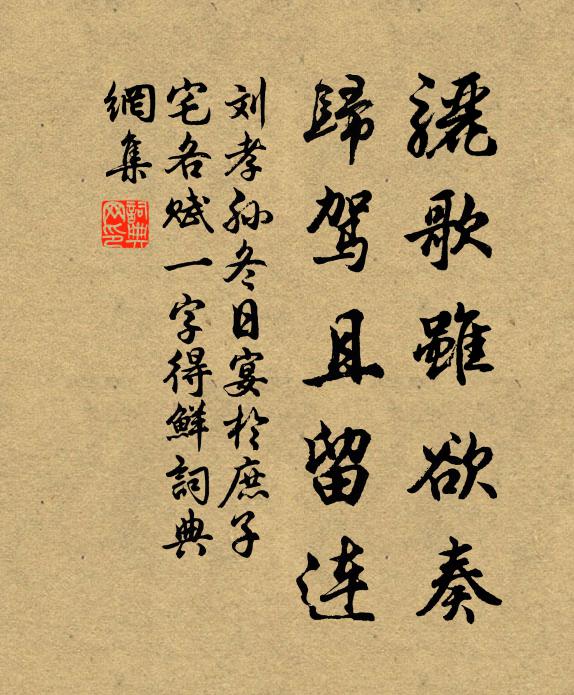 驪歌雖欲奏
歸驾且留連
刘孝孙冬日宴於庶子
宅各赋一字得鮮詞典
網集
詞典網印